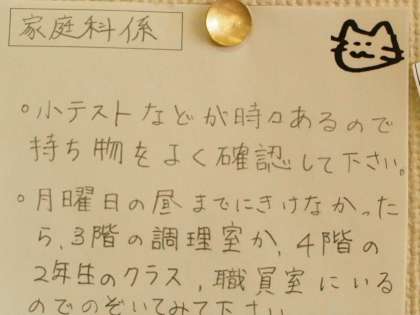 家庭科係
。小テストなどが時々あるので
持ち物をよく確認して下さい。
。月曜日の昼までにきけなかった
ら、3階の調理室か、4階の
2年生のクラス、職員室にいる
のでのぞいてみて下さい